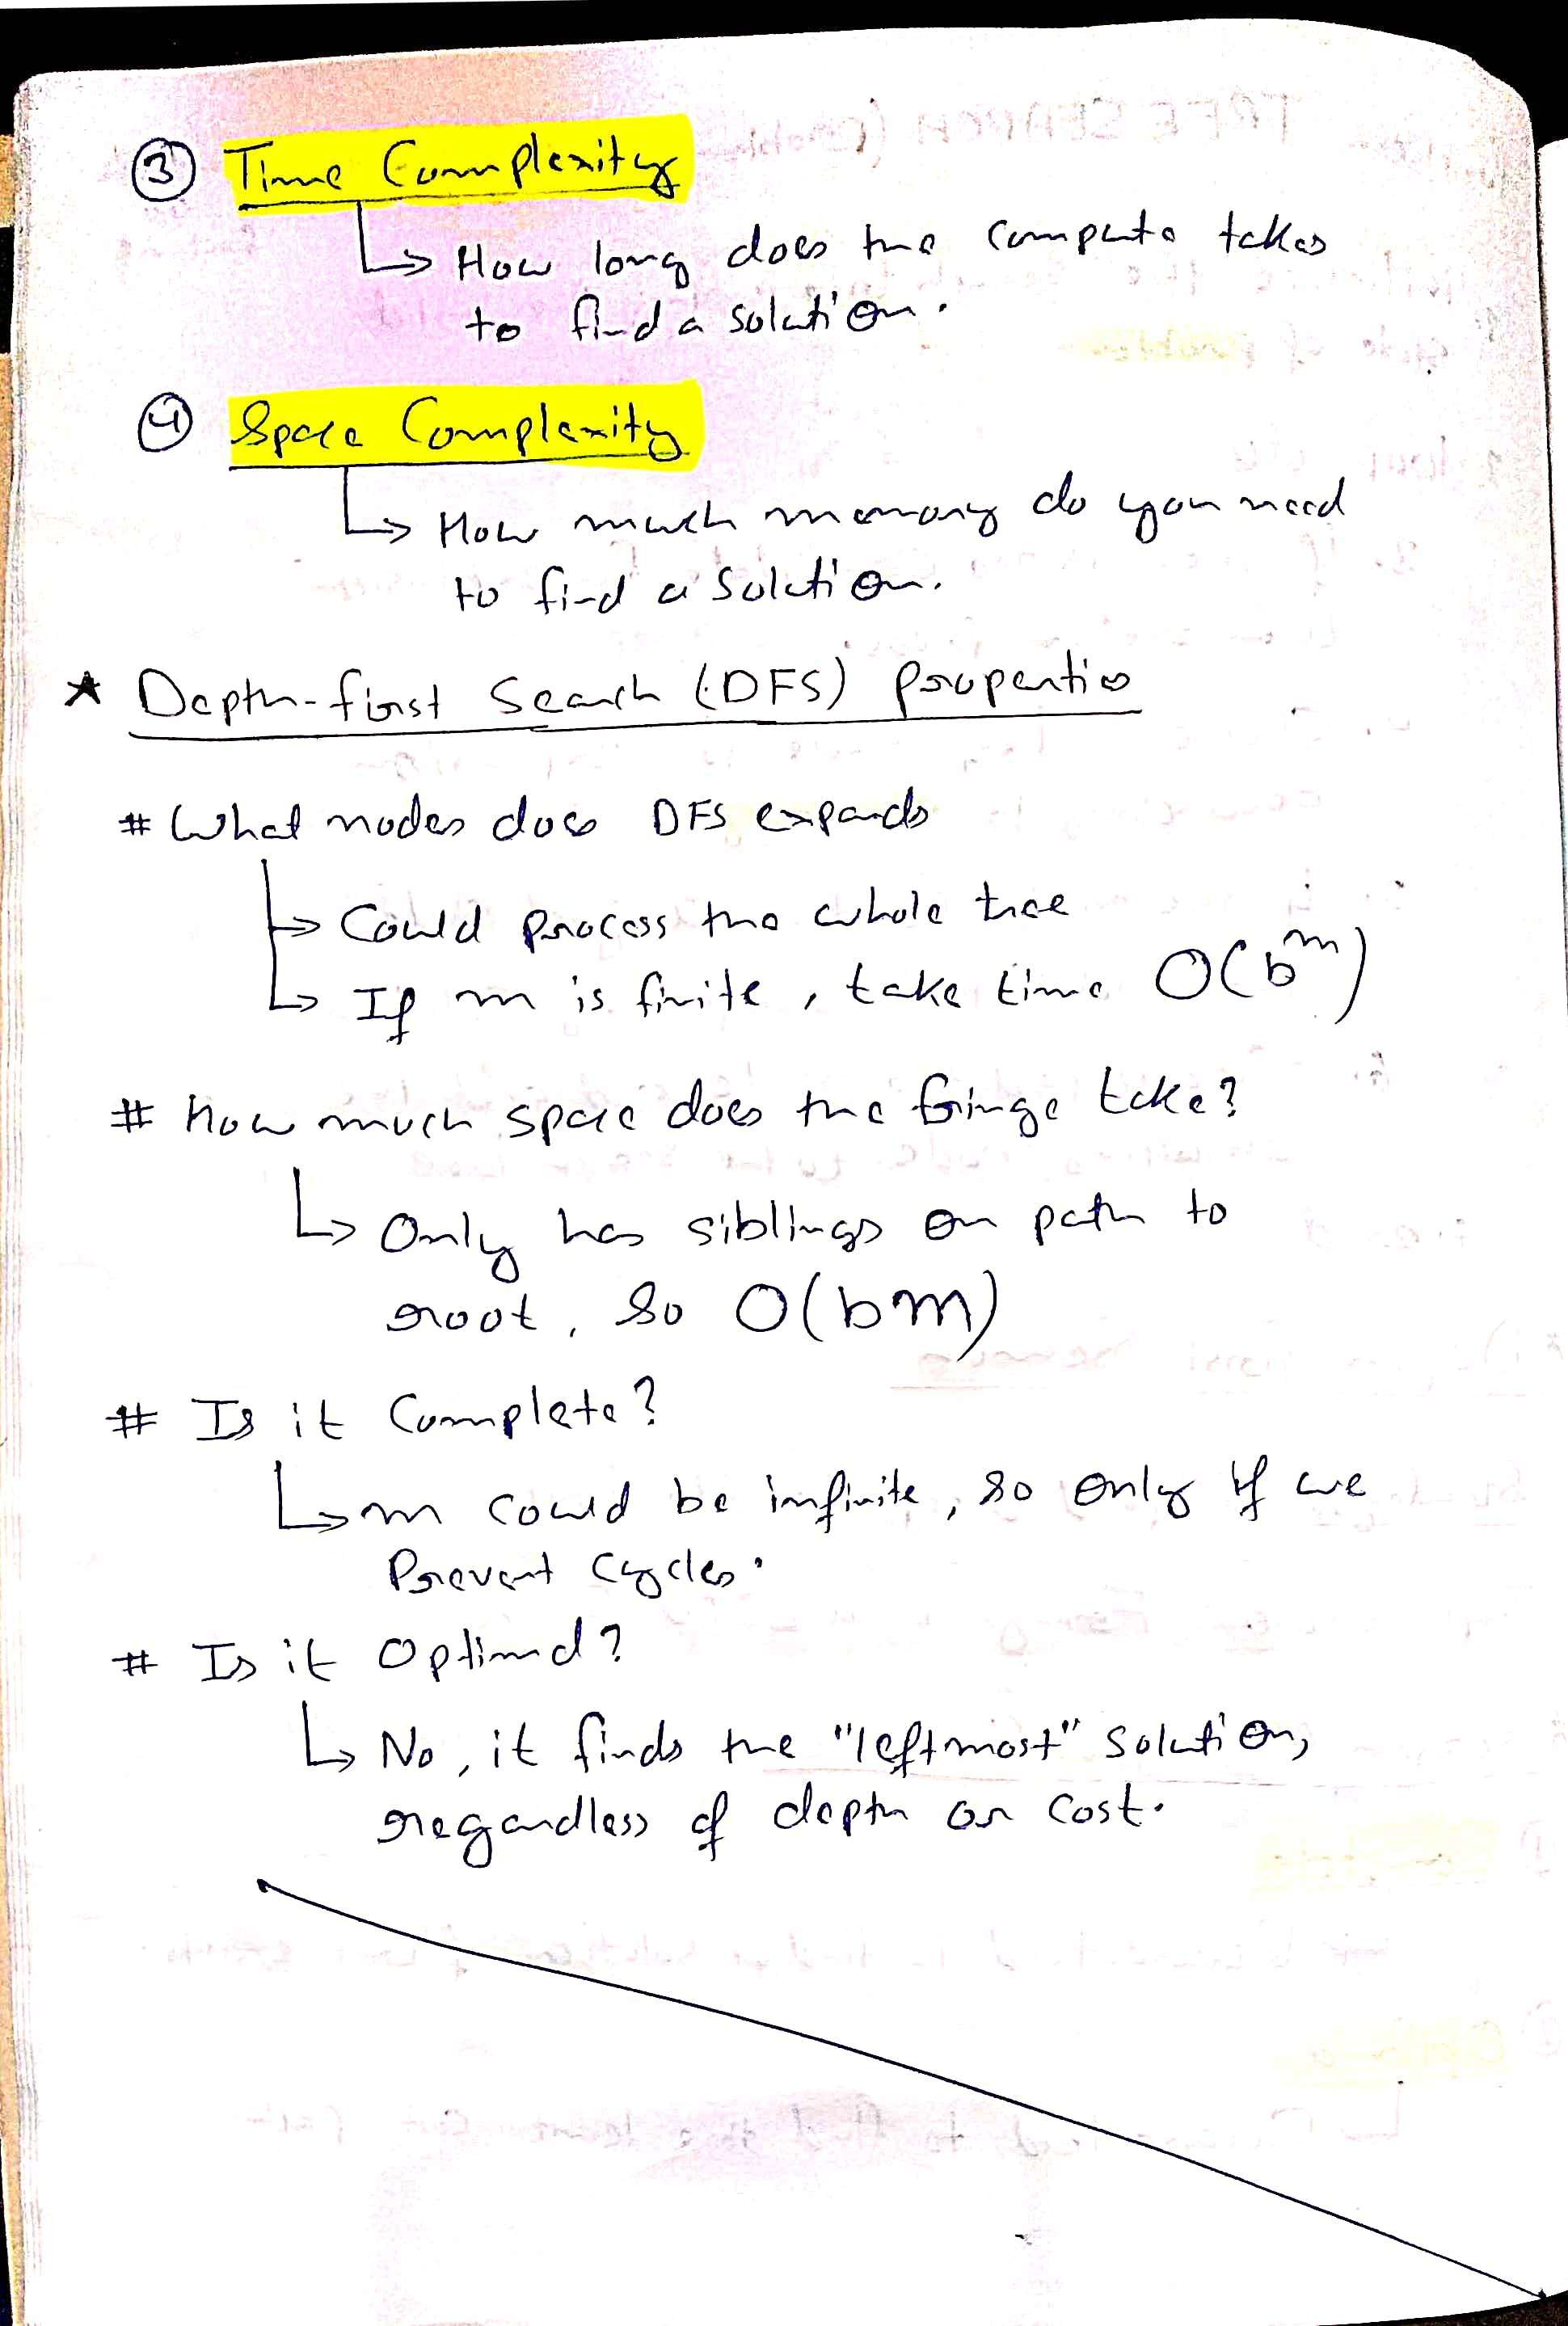 ③ Time Complexity
↳ How long does the compute takes
to find a solution.
④ Space Complexity
↳ How much memory do you need
to find a solution.
★ Depth-first Search (DFS) Properties
# What nodes does DFS expands
↳ Could process the whole tree
↳ If m is finite, take time O(b^m)
# How much space does the fringe take?
↳ Only has siblings on path to
root, so O(bm)
# Is it Complete?
↳ m could be infinite, so only if we
Prevent cycles.
# Is it Optimal?
↳ No, it finds the "leftmost" solution,
regardless of depth or cost.